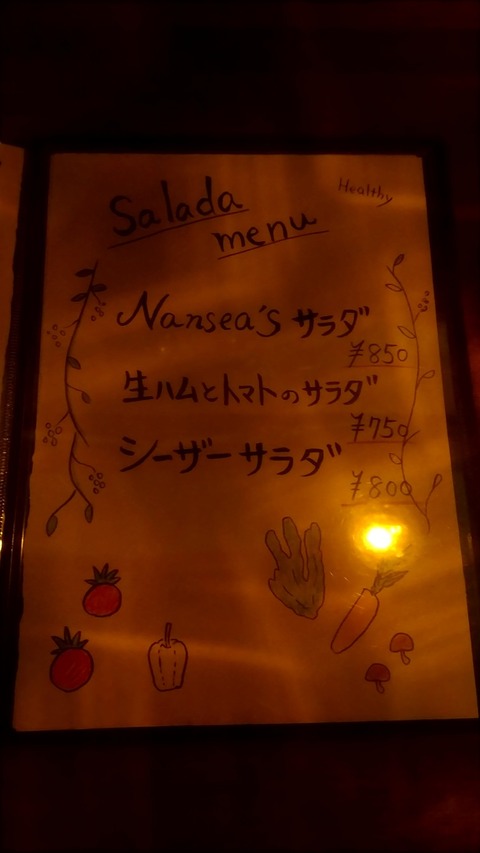 Salada
menu
Healthy
Nansea's サラダ
¥850
生ハムとトマトのサラダ
¥750
シーザーサラダ
¥800